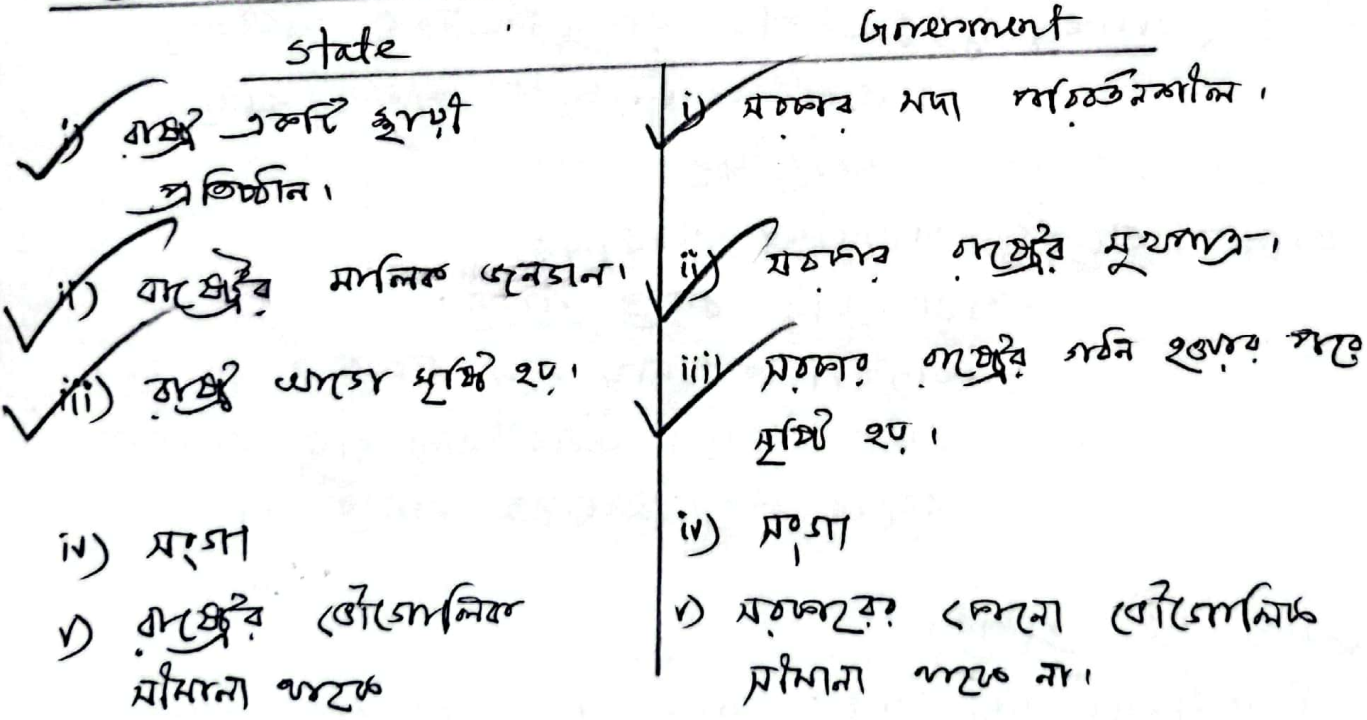 State
Government
i) রাষ্ট্র একটি স্থায়ী
প্রতিষ্ঠান।
i) সরকার সদা পরিবর্তনশীল।
ii) রাষ্ট্রের মালিক জনগন।
ii) সরকার রাষ্ট্রের মুখপাত্র।
iii) রাষ্ট্র আগে সৃষ্টি হয়।
iii) সরকার রাষ্ট্রের গঠন হওয়ার পরে
সৃষ্টি হয়।
iv) সংগা
iv) সংগা
v) রাষ্ট্রের ভৌগোলিক
সীমানা থাকে
v) সরকারের কোনো ভৌগোলিক
সীমানা থাকে না।